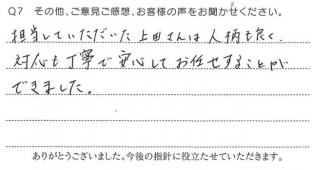 Q7 その他、ご意見ご感想、お客様の声をお聞かせください。
担当していただいた上田さんは人柄も良く、
対応も丁寧で安心してお任せすることが
できました。
ありがとうございました。今後の指針に役立たせていただきます。